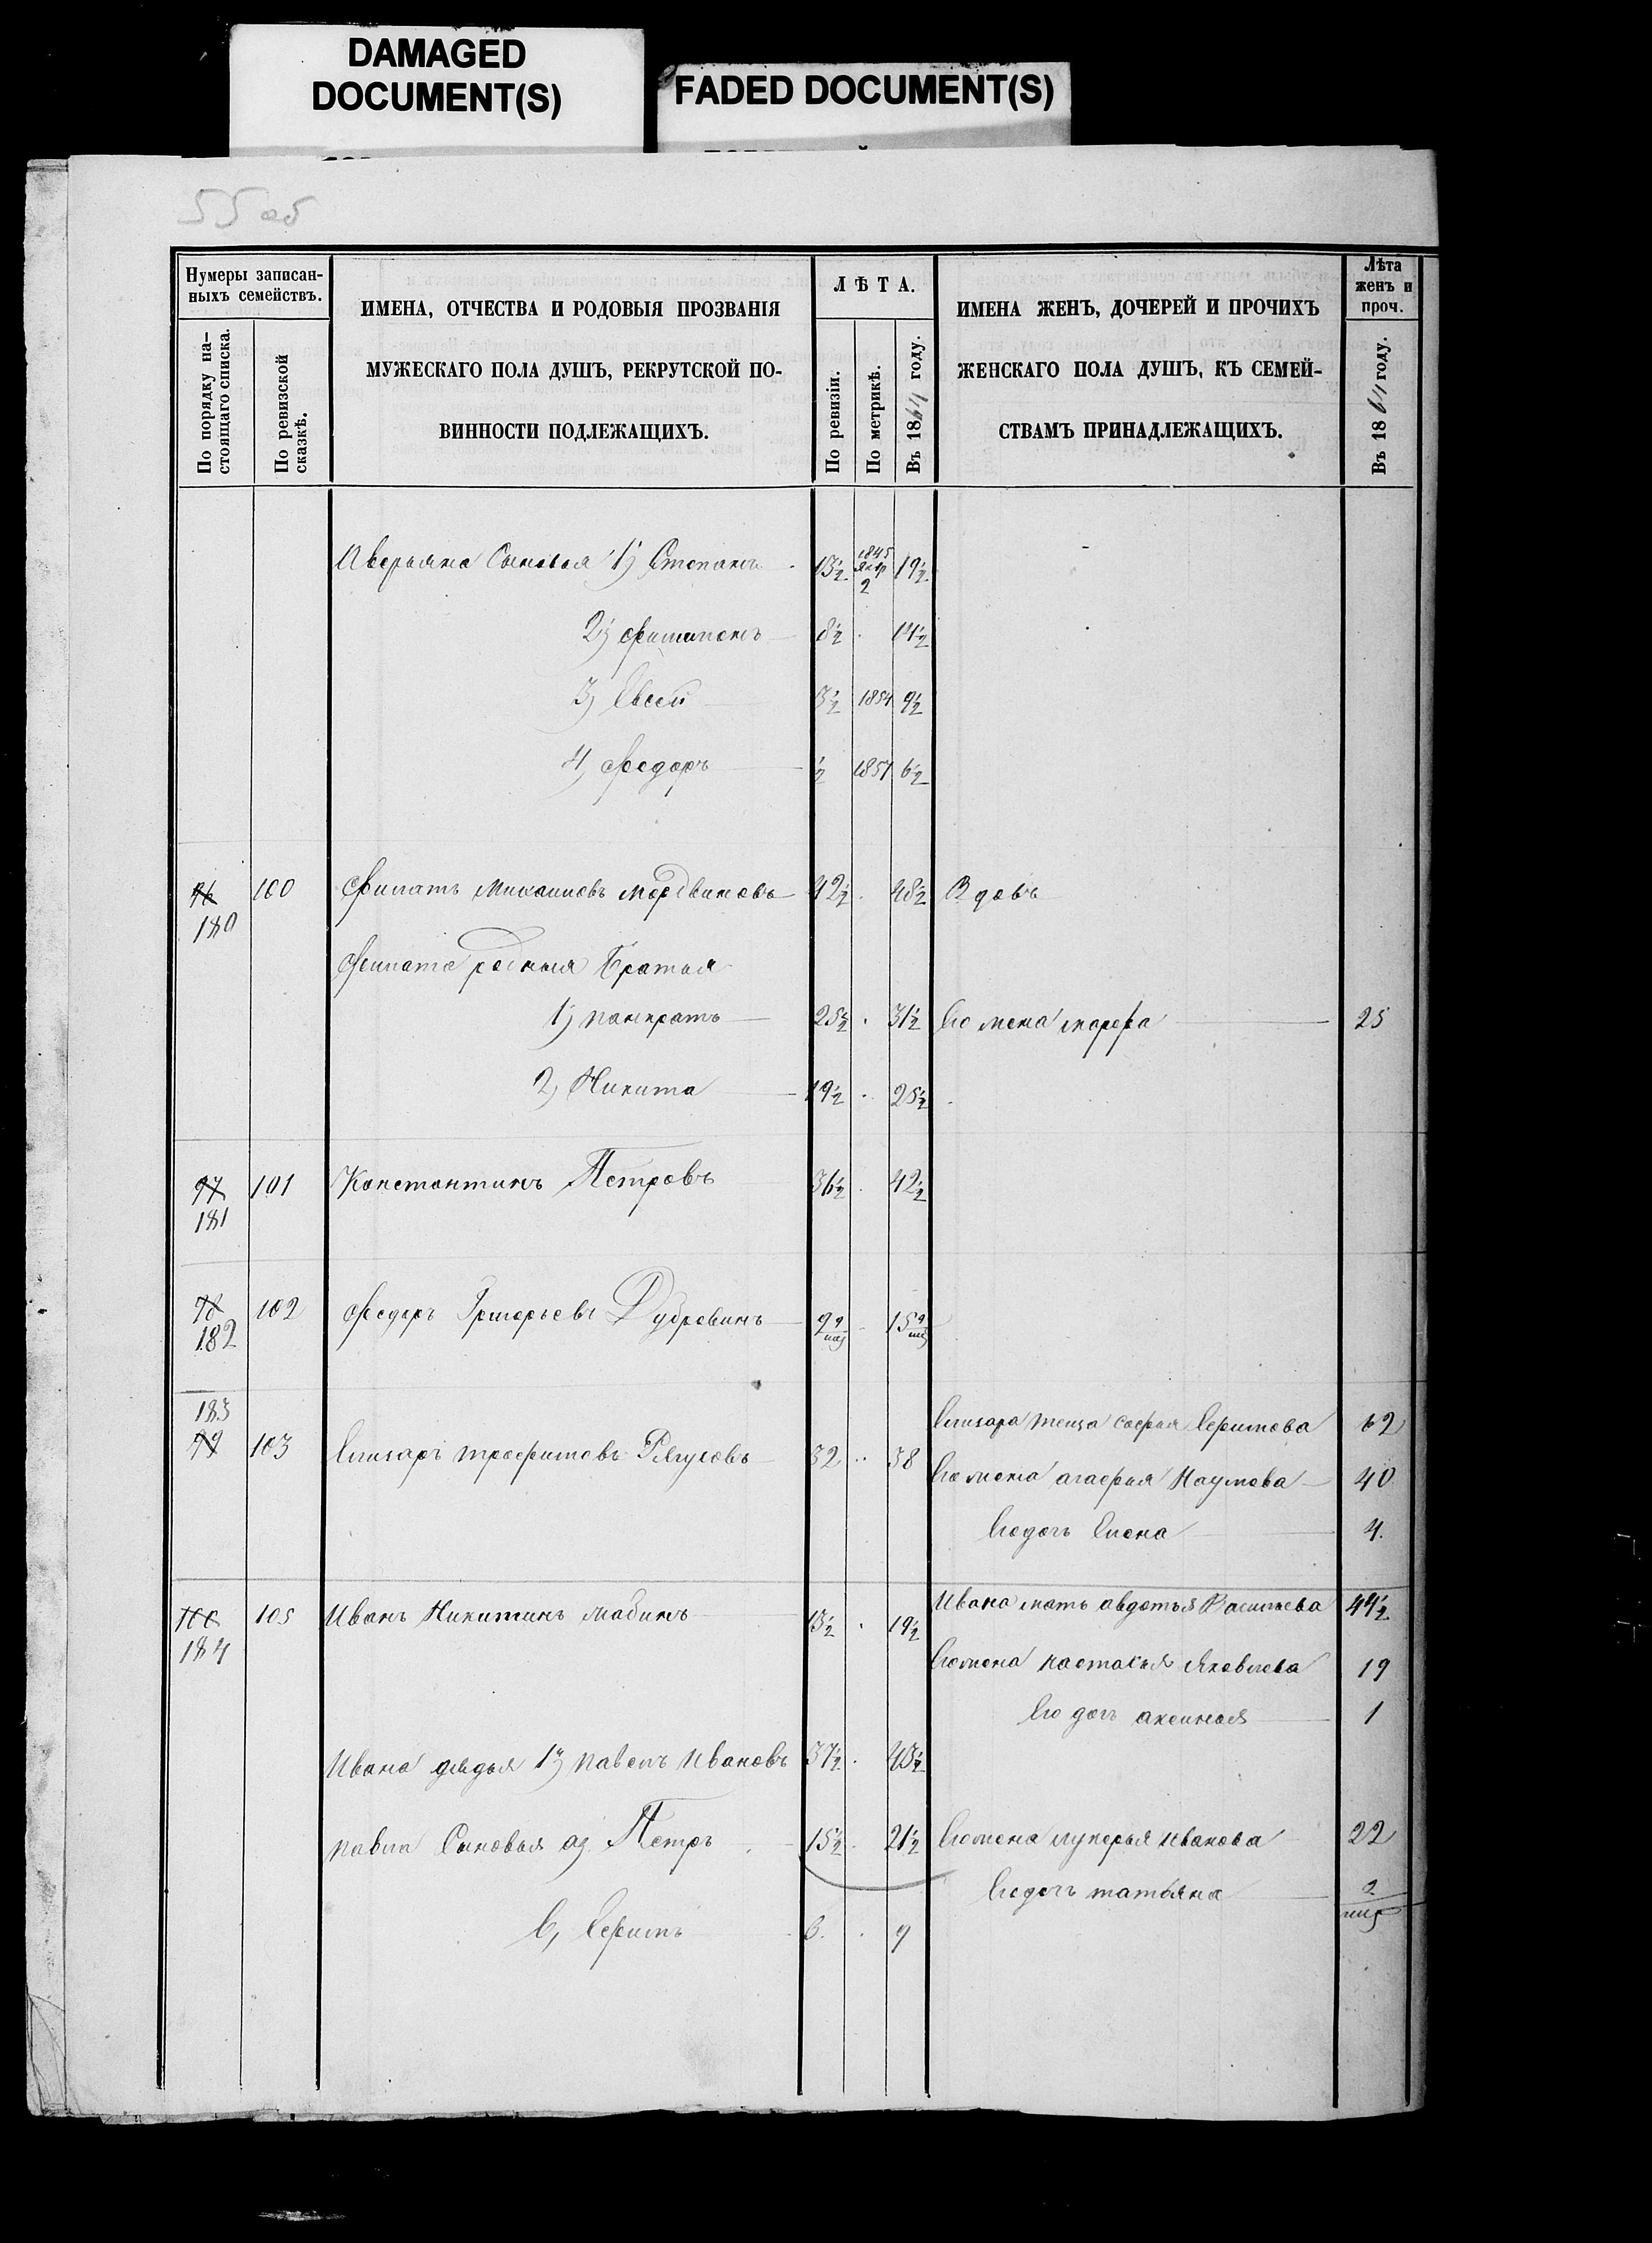 DAMAGED
DOCUMENT(S)
FADED DOCUMENT(S)
55 об
Нумеры записан-
ныхъ семействъ.
По порядку на-
стоящаго списка.
По ревизской
сказкѣ.
ИМЕНА, ОТЧЕСТВА И РОДОВЫЯ ПРОЗВАНІЯ
МУЖЕСКАГО ПОЛА ДУШЪ, РЕКРУТСКОЙ ПО-
ВИННОСТИ ПОДЛЕЖАЩИХЪ.
ЛѢТА.
По ревизіи.
По метрикѣ.
Въ 1864 году.
ИМЕНА ЖЕНЪ, ДОЧЕРЕЙ И ПРОЧИХЪ
ЖЕНСКАГО ПОЛА ДУШЪ, КЪ СЕМЕЙ-
СТВАМЪ ПРИНАДЛЕЖАЩИХЪ.
Лѣта
женъ и
проч.
Въ 1864 году.
Аверьяна Сыновья 1) Степанъ 13½ 1845 Янв 2 19½
2) Филимонъ 8½ 14½
3) Евсей 3½ 1854 9½
4) Федоръ ½ 1857 6½
96 180 100 Филатъ Михаиловъ Мордвиновъ 42½ 48½ Вдовъ
Филата родныя Братья
1) Панкратъ 25½ 31½ Его жена Марфа 25
2) Никита 19½ 25½
97 181 101 Константинъ Петровъ 36½ 42½
98 182 102 Федоръ Григорьевъ Дубровинъ 9 9 мѣ 15 9 мѣ
183
Елизара теща Софья Ефимова 62
99 103 Елизаръ Трофимовъ 32 38
Его жена Агафья Наумова 40
Его дочь Елена 4.
Ивана мать Авдотья Васильева 44½
100 184 105 Иванъ Никитинъ Мабинъ 13½ 19½
Его жена Настасья Яковлева 19
Его дочь Аксинья 1
Ивана дядья 1) Павелъ Ивановъ 37½ 43½
Павла Сыновья а) Петръ 15½ 21½ Его жена Лукерья Иванова 22
Его дочь Татьяна
в) Ефимъ 9